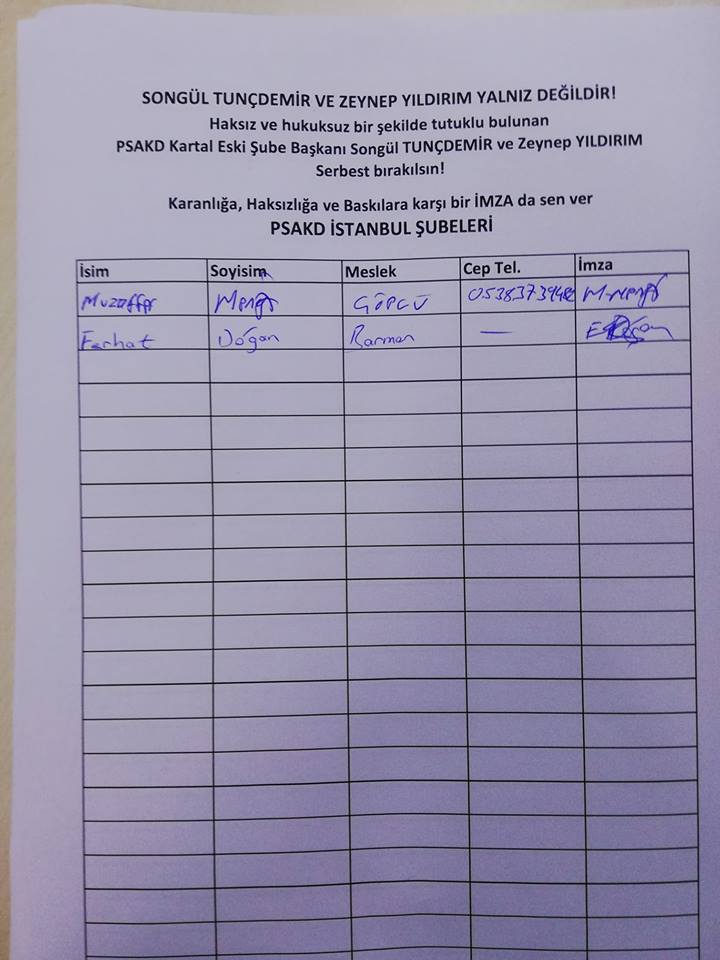 SONGÜL TUNÇDEMİR VE ZEYNEP YILDIRIM YALNIZ DEĞİLDİR!
Haksız ve hukuksuz bir şekilde tutuklu bulunan
PSAKD Kartal Eski Şube Başkanı Songül TUNÇDEMİR ve Zeynep YILDIRIM
Serbest bırakılsın!
Karanlığa, Haksızlığa ve Baskılara karşı bir İMZA da sen ver
PSAKD İSTANBUL ŞUBELERİ
İsim Soyisim Meslek Cep Tel. İmza
Muzaffer
Ferhat Doğan Barmen —